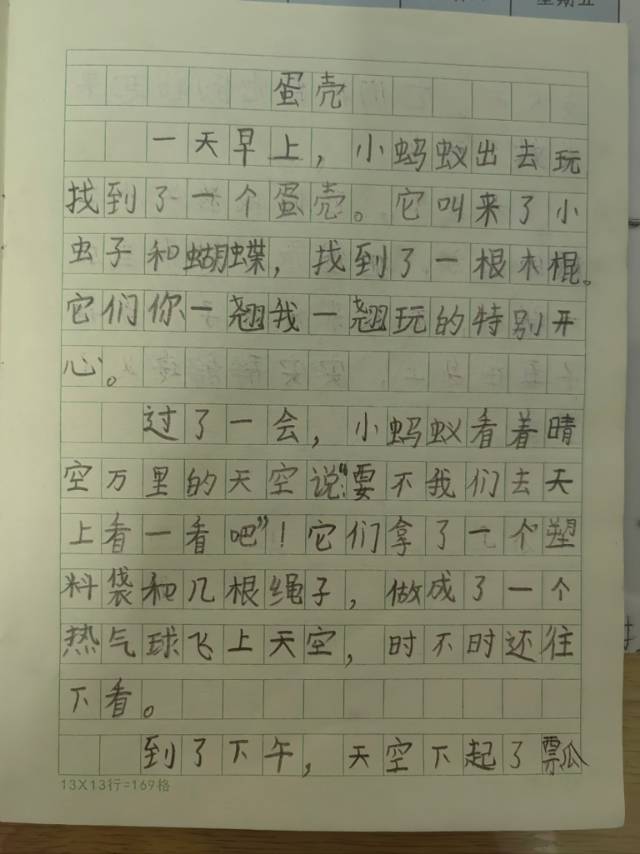 星期五
蛋壳
一天早上，小蚂蚁出去玩
找到了一个蛋壳。它叫来了小
虫子和蝴蝶，找到了一根木棍。
它们你一翘我一翘玩的特别开
心。
过了一会，小蚂蚁看着晴
空万里的天空说“要不我们去天
上看一看吧”！它们拿了一个塑
料袋和几根绳子，做成了一个
热气球飞上天空，时不时还往
下看。
到了下午，天空下起了瓢
13X13行=169格